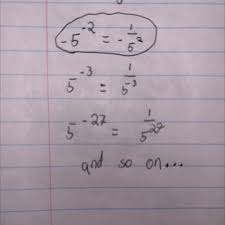 -5^-2 = -1/5^2
5^-3 = 1/5^-3
5^-27 = 1/5^27
and so on...